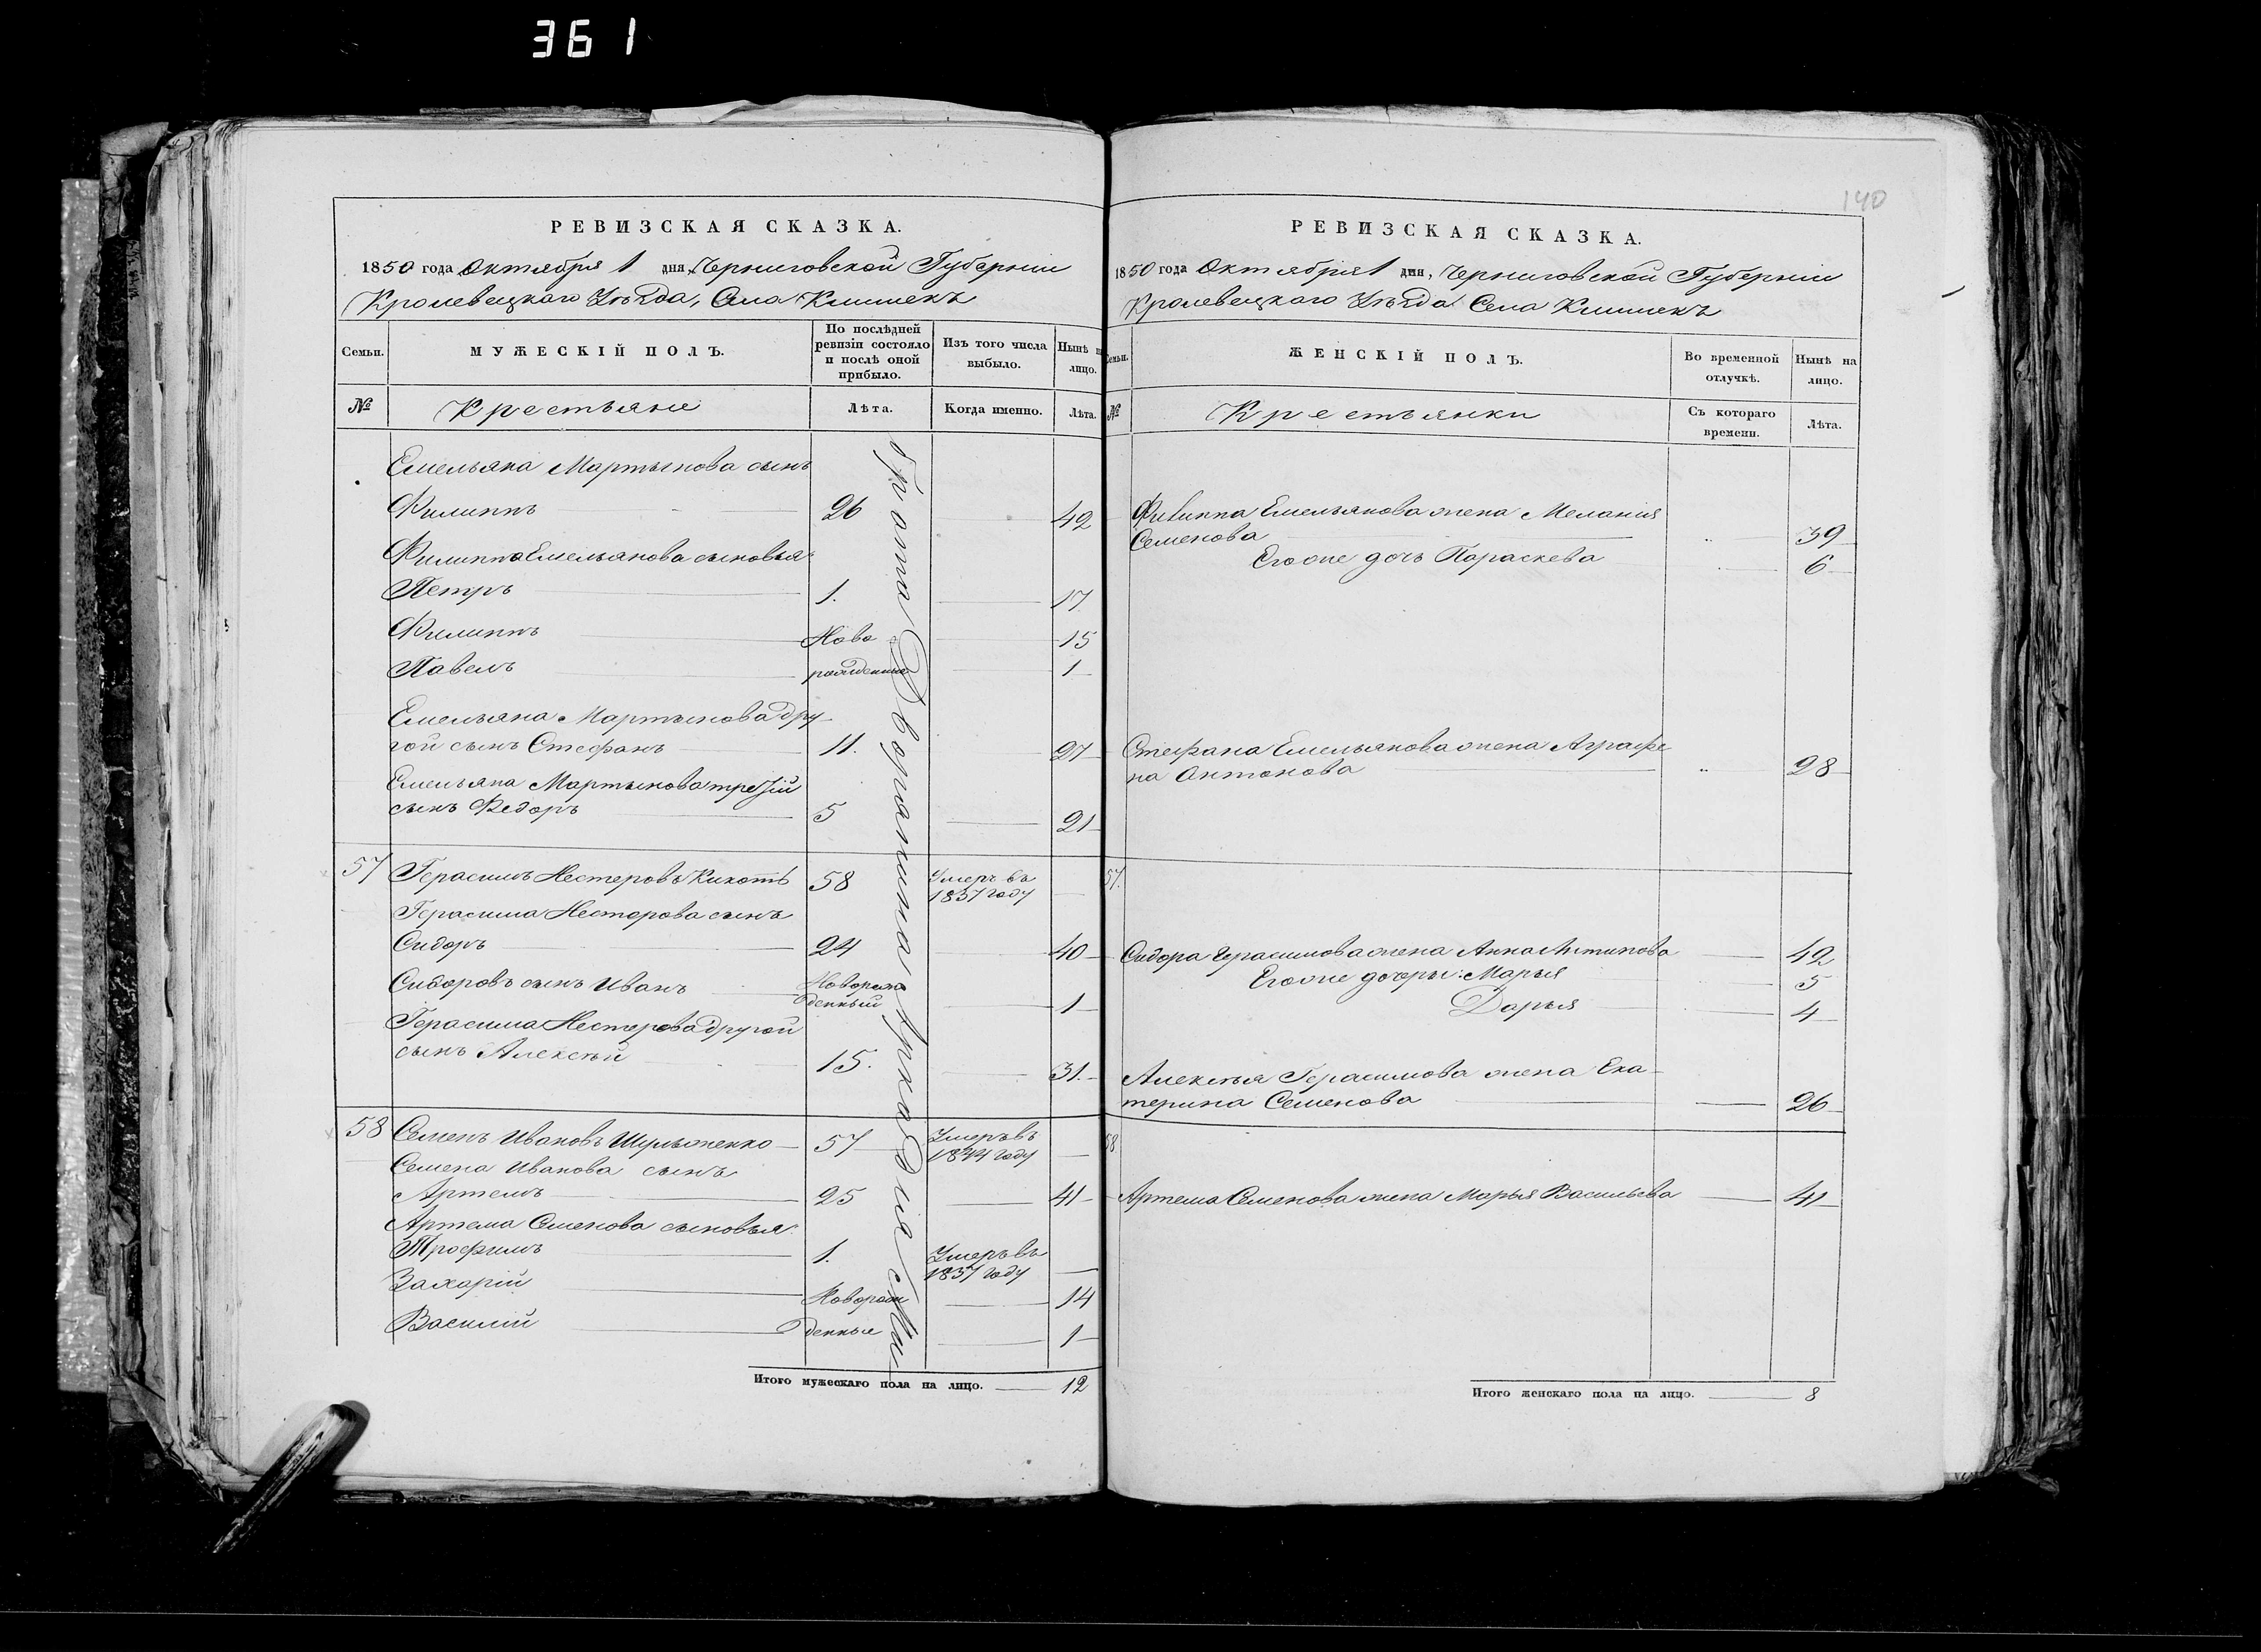 361
РЕВИЗСКАЯ СКАЗКА.
1850 года Октября 1 дня, Черниговской Губерніи
Кролевецкаго Уѣзда, Села Клишекъ
Семьи.
МУЖЕСКІЙ ПОЛЪ.
По послѣдней
ревизіи состояло
и послѣ оной
прибыло.
Изъ того числа
выбыло.
Нынѣ н
лицо.
№
Крестьяне
Лѣта.
Когда именно.
Лѣта.
Емельяна Мартынова сынъ
Филиппъ 26 42
Филиппа Емельянова сыновья
Петръ 1. 17
Филиппъ Ново 15
Павелъ рожденные 1
Емельяна Мартынова дру
гой сынъ Стефанъ 11. 27
Емельяна Мартынова третій
сынъ Федоръ 5 21
57 Герасимъ Нестеровъ Кихоть 58 Умеръ въ
1837 году
Герасима Нестерова сынъ
Сидоръ 24 40
Сидоровъ сынъ Иванъ Новорож
денный 1
Герасима Нестерова другой
сынъ Алексѣй 15. 31.
58 Семенъ Ивановъ Шульженко 57 Умеръ въ
1844 году
Семена Иванова сынъ
Артемъ 25 41
Артема Семенова сыновья
Трофимъ 1. Умеръ въ
1837 году
Захарій Новорож 14
Василій денные 1
Итого мужескаго пола на лицо. 12
140
РЕВИЗСКАЯ СКАЗКА.
1850 года Октября 1 дня, Черниговской Губерніи
Кролевецкаго Уѣзда Села Клишекъ
Семьи.
ЖЕНСКІЙ ПОЛЪ.
Во временной
отлучкѣ.
Нынѣ на
лицо.
№
Крестьянки
Съ котораго
времени.
Лѣта.
Филиппа Емельянова жена Меланія
Семенова 39
Егоже дочь Параскева 6
Стефана Емельянова жена Аграфе
на Антонова 28
57.
Сидора Герасимова жена Анна 42
Егоже дочеры: Марья 5
Дарья 4
Алексѣя Герасимова жена Ека
терина Семенова 26
58
Артема Семенова жена Марья Васильева 41
Итого женскаго пола на лицо. 8